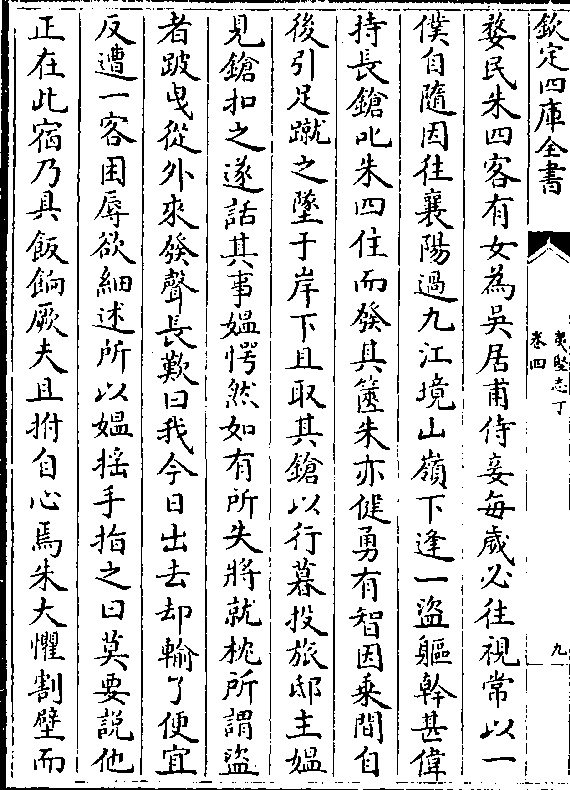 欽定四庫全書
夷堅志丁
卷四
九
婺民朱四客有女為吳居甫侍妾每歲必往視常以一
僕自隨因往襄陽過九江境山嶺下逢一盜軀幹甚偉
持長鎗叱朱四住而發其篋朱亦健勇有智因乘間自
後引足蹴之墜于岸下且取其鎗以行暮投旅邸主媼
見鎗扣之遂話其事媼愕然如有所失將就枕所謂盜
者跛曳從外來發聲長歎曰我今日出去却輸了便宜
反遭一客困辱欲細述所以媼揺手指之曰莫要説他
正在此宿乃具飯餉厥夫且拊自心焉朱大懼割壁而